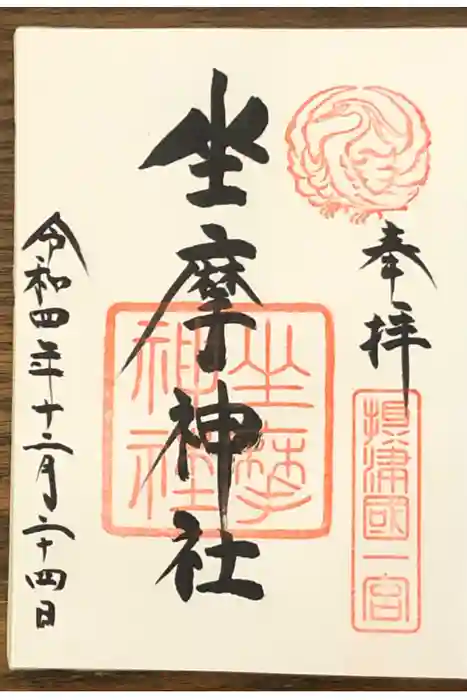 奉拝
摂津國一宮
坐摩神社
坐摩
神社
令和四年十二月二十四日